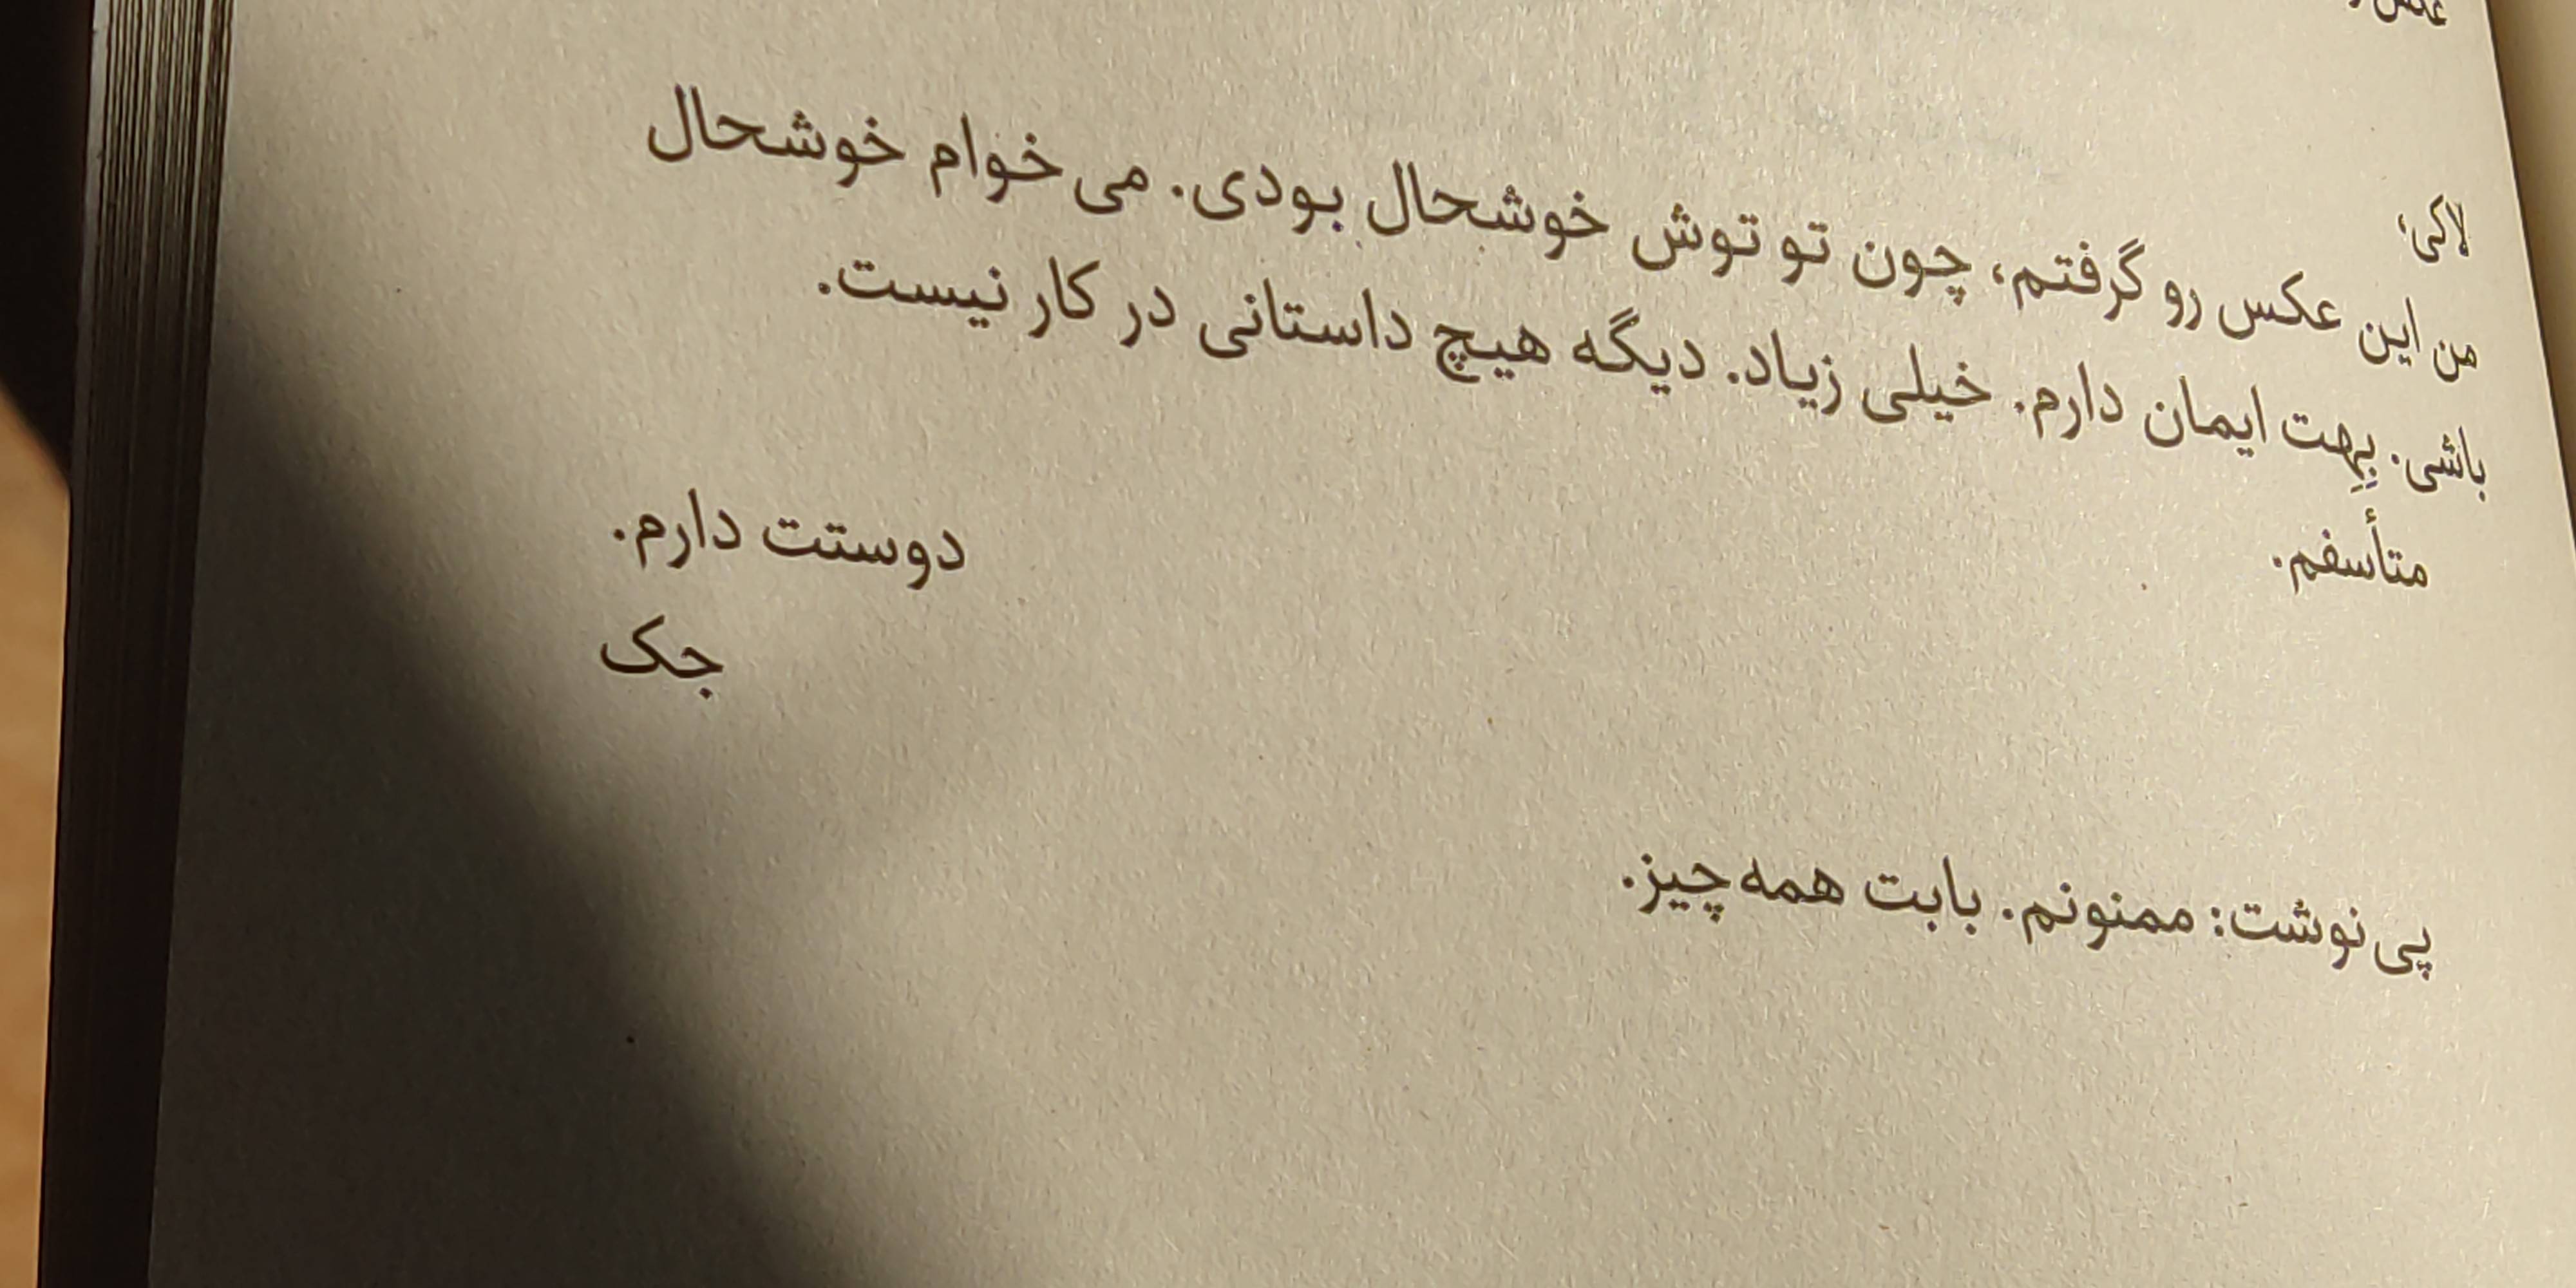 لاکی،
من این عکس رو گرفتم، چون تو توش خوشحال بودی. می‌خوام خوشحال
باشی. بِهِت ایمان دارم. خیلی زیاد. دیگه هیچ داستانی در کار نیست.
متأسفم.
دوستت دارم.
جک
پی‌نوشت: ممنونم. بابت همه‌چیز.